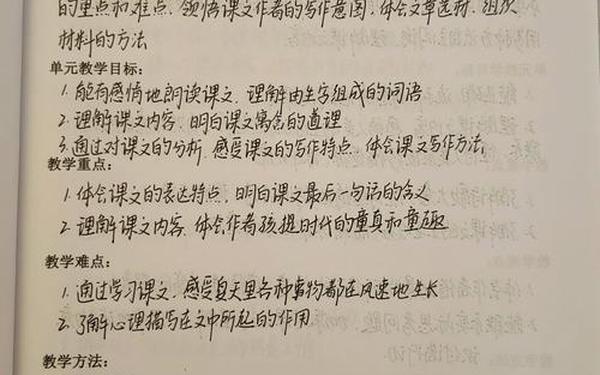 的重点和难点、领悟课文作者的写作意图、体会文章选材、组织
材料的方法
单元教学目标：
1. 能有感情地朗读课文、理解由生字组成的词语
2. 理解课文内容、明白课文寓含的道理
3. 通过对课文的分析、感受课文的写作特点、体会课文写作方法
教学重点：
1. 体会课文的表达特点、明白课文最后一句话的含义
2. 理解课文内容、体会作者孩提时代的童真和童趣
教学难点：
1. 通过学习课文、感受夏天里各种事物都在风速地生长
2. 了解心理描写在文中所起的作用
教学方法：